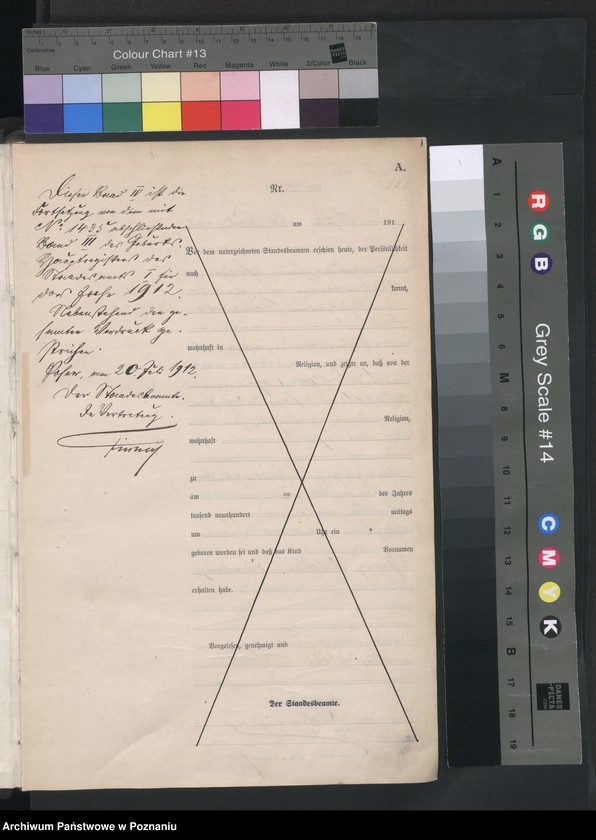 Colour Chart #13
Blue Cyan Green Yellow Red Magenta White 3/Color Black
A.
Nr.
am 191
Vor dem unterzeichneten Standesbeamten erschien heute, der Persönlichkeit
nach
kannt,
wohnhaft in
Religion, und zeigte an, daß von der
Religion,
wohnhaft
zu
am des Jahres
tausend neunhundert mittags
um Uhr ein
geboren worden sei und daß das Kind Vornamen
erhalten habe.
Vorgelesen, genehmigt und
Der Standesbeamte.
Dieser Band IV ist die
Fortsetzung von dem mit
No. 1435 abschließenden
Band III des Geburts-
Hauptregisters des
Standesamts I für
das Jahr 1912.
Nebenstehend der ge-
samte Vordruck ge-
strichen.
Posen, am 20 Juli 1912.
Der Standesbeamte.
In Vertretung.
Grey Scale #14
R
G
B
C
M
Y
K
A 1 2 3 4 5 6 M 8 9 10 11 12 13 14 15 B 17 18 19
DANES
PICTA
Archiwum Państwowe w Poznaniu